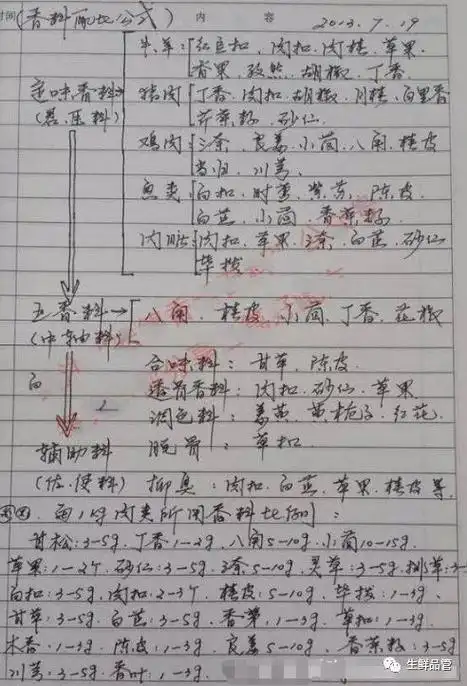 时间(香料配比公式) 内 容 2013.7.19
牛.羊:[红豆扣、肉扣.肉桂、草果.
香果、孜然、胡椒、丁香.
定味香料→ 猪肉[丁香.肉扣.胡椒、月桂.白里香
(君.臣料) 芹菜籽、砂仁.
鸡肉[三奈.良姜、小茴、八角、桂皮
当归.川芎.
鱼类[白扣、莳萝、紫苏、陈皮
白芷、小茴、香菜籽.
内脏[肉扣、草果.三奈、白芷、砂仙
毕拨
五香料→[八角、桂皮、小茴、丁香、花椒
(中轴料)
合味料:甘草、陈皮.
透骨香料:肉扣、砂仙、草果
调色料:姜黄、黄栀子、红花.
辅助料 脱骨:草扣.
(佐.使料) 抑臭:肉扣、白芷、草果、桂皮等.
每1kg肉类所用香料比例:
甘松:3-5g、丁香:1-2g、八角5-10g.小茴10-15g.
草果:1-2个、砂仙:3-5g.三奈5-10g、灵草:3-5g.排草:3-
白扣:3-5g,肉扣:2-3个、桂皮:5-10g、毕拨:1-3g、
甘草:3-5g.白芷:3-5g、香茅:1-3g、草扣:1-3g.
木香:1-3g、陈皮:1-3g、良姜5-10g、香菜籽:3-5g
川芎:3-5g.香叶:1-3g.
生鲜品管